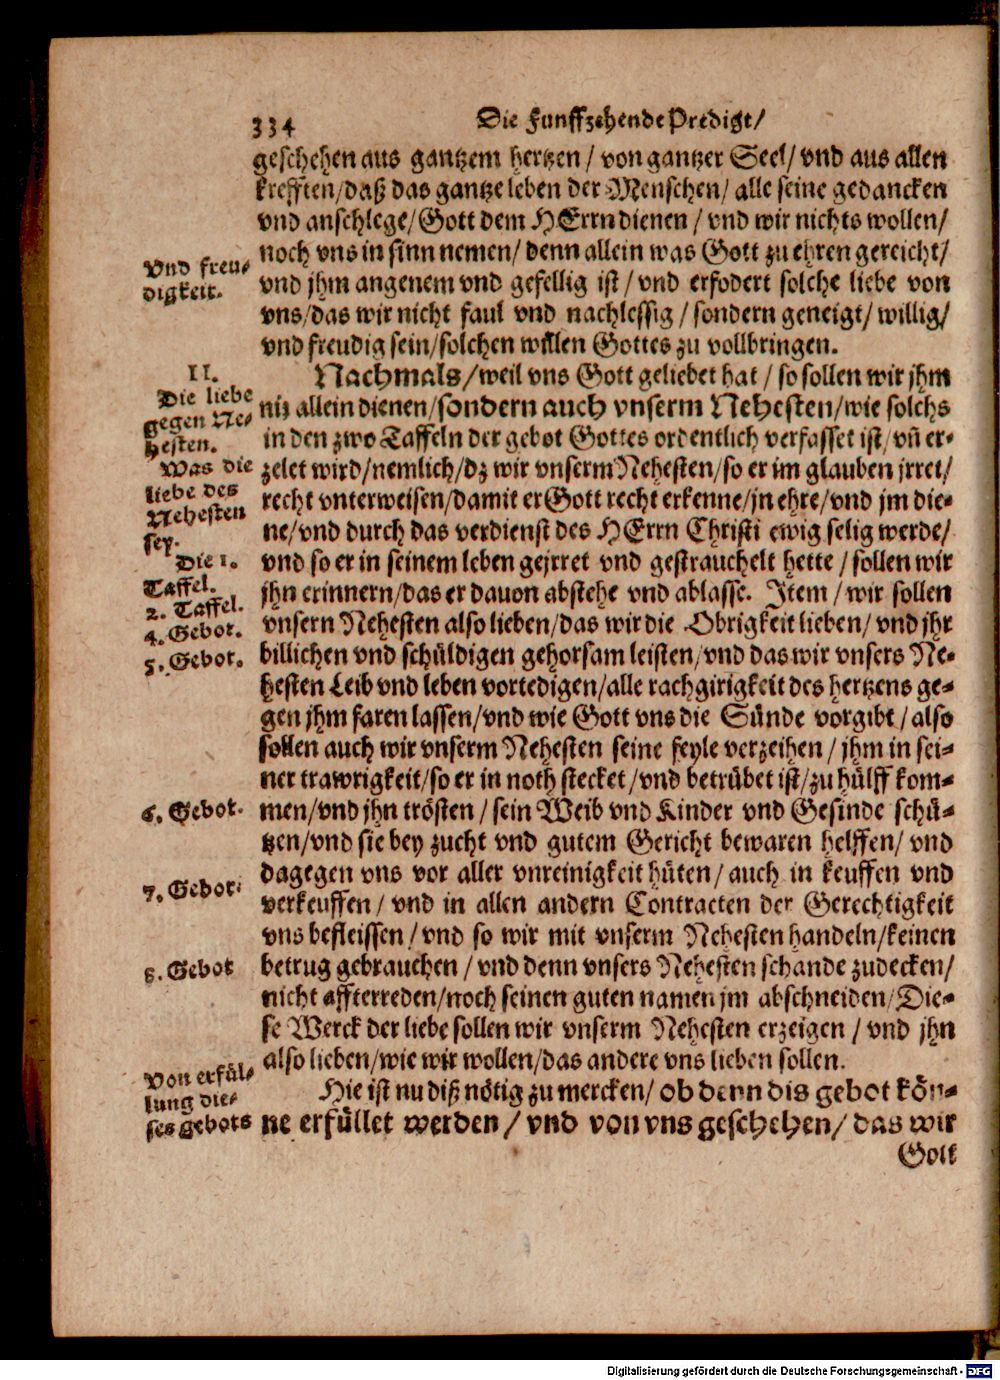 334
Die Funffzehende Predigt/
geschehen aus gantzem hertzen/ von gantzer Seel/ vnd aus allen
krefften/daß das gantze leben der Menschen/ alle seine gedancken
vnd anschlege/Gott dem HErrn dienen/ vnd wir nichts wollen/
noch vns in sinn nemen/ denn allein was Gott zu ehren gereicht/
Vnd freu-
digkeit.
vnd jhm angenem vnd gefellig ist/ vnd erfodert solche liebe von
vns/das wir nicht faul vnd nachlessig/ sondern geneigt/ willig/
vnd freudig sein/solchen willen Gottes zu vollbringen.
II.
Die liebe
gegen Ne-
hesten.
Nachmals/weil vns Gott geliebet hat/ so sollen wir jhm
nit allein dienen/sondern auch vnserm Nehesten/wie solchs
in den zwo Taffeln der gebot Gottes ordentlich verfasset ist/ vñ er-
Was die
liebe des
Nehesten
sey.
zelet wird/nemlich/dz wir vnserm Nehesten/so er im glauben jrret/
recht vnterweisen/damit er Gott recht erkenne/jn ehre/vnd jm die-
ne/vnd durch das verdienst des HErrn Christi ewig selig werde/
Die 1.
Taffel.
vnd so er in seinem leben gejrret vnd gestrauchelt hette/ sollen wir
jhn erinnern/das er dauon abstehe vnd ablasse. Item/ wir sollen
2. Taffel.
4. Gebot.
vnsern Nehesten also lieben/das wir die Obrigkeit lieben/ vnd jhr
5. Gebot.
billichen vnd schüldigen gehorsam leisten/vnd das wir vnsers Ne-
hesten Leib vnd leben vortedigen/alle rachgirigkeit des hertzens ge-
gen jhm faren lassen/vnd wie Gott vns die Sünde vorgibt/ also
sollen auch wir vnserm Nehesten seine feyle verzeihen/ jhm in sei-
ner trawrigkeit/so er in noth stecket/vnd betrübet ist/zu hülff kom-
6. Gebot.
men/vnd jhn trösten/ sein Weib vnd Kinder vnd Gesinde schü-
tzen/vnd sie bey zucht vnd gutem Gericht bewaren helffen/ vnd
7. Gebot.
dagegen vns vor aller vnreinigkeit hüten/ auch in keuffen vnd
verkeuffen/ vnd in allen andern Contracten der Gerechtigkeit
vns befleissen/ vnd so wir mit vnserm Nehesten handeln/keinen
8. Gebot
betrug gebrauchen/ vnd denn vnsers Nehesten schande zudecken/
nicht affterreden/noch seinen guten namen jm abschneiden/Die-
se Werck der liebe sollen wir vnserm Nehesten erzeigen/ vnd jhn
also lieben/wie wir wollen/das andere vns lieben sollen.
Von erfül-
lung die-
ses gebots
Hie ist nu diß nötig zu mercken/ ob denn dis gebot kön-
ne erfüllet werden/ vnd von vns geschehen/ das wir
Gott
Digitalisierung gefördert durch die Deutsche Forschungsgemeinschaft - DFG